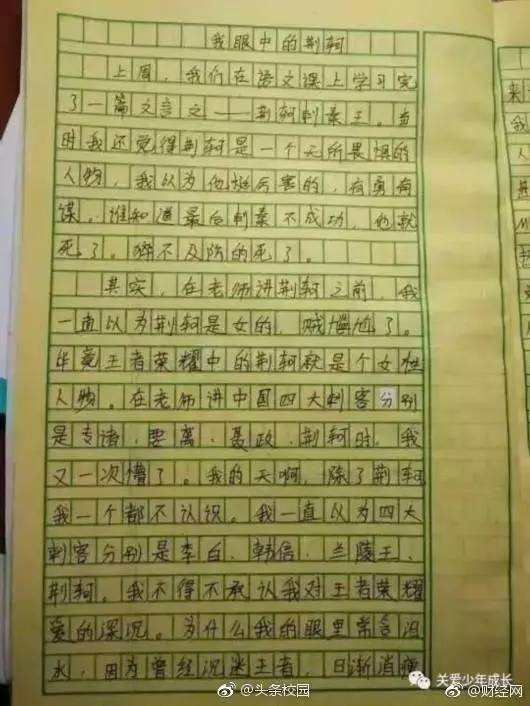 我眼中的荆轲
上周，我们在语文课上学习完
了一篇文言文——荆轲刺秦王。当
时我还觉得荆轲是一个无所畏惧的
人物，我以为他挺厉害的，有勇有
谋。谁知道最后刺秦不成功，他就
死了。猝不及防的死了。
其实，在老师讲荆轲之前，我
一直以为荆轲是女的，贼尴尬了。
毕竟王者荣耀中的荆轲就是个女性
人物。在老师讲中国四大刺客分别
是专诸、要离、聂政、荆轲时，我
又一次懵了。我的天啊，除了荆轲
我一个都不认识。我一直以为四大
刺客分别是李白、韩信、兰陵王、
荆轲。我不得不承认我对王者荣耀
爱的深沉。为什么我的眼里常含泪
水，因为曾经沉迷王者，日渐消瘦
来
我
人
关爱少年成长
@头条校园
@财经网